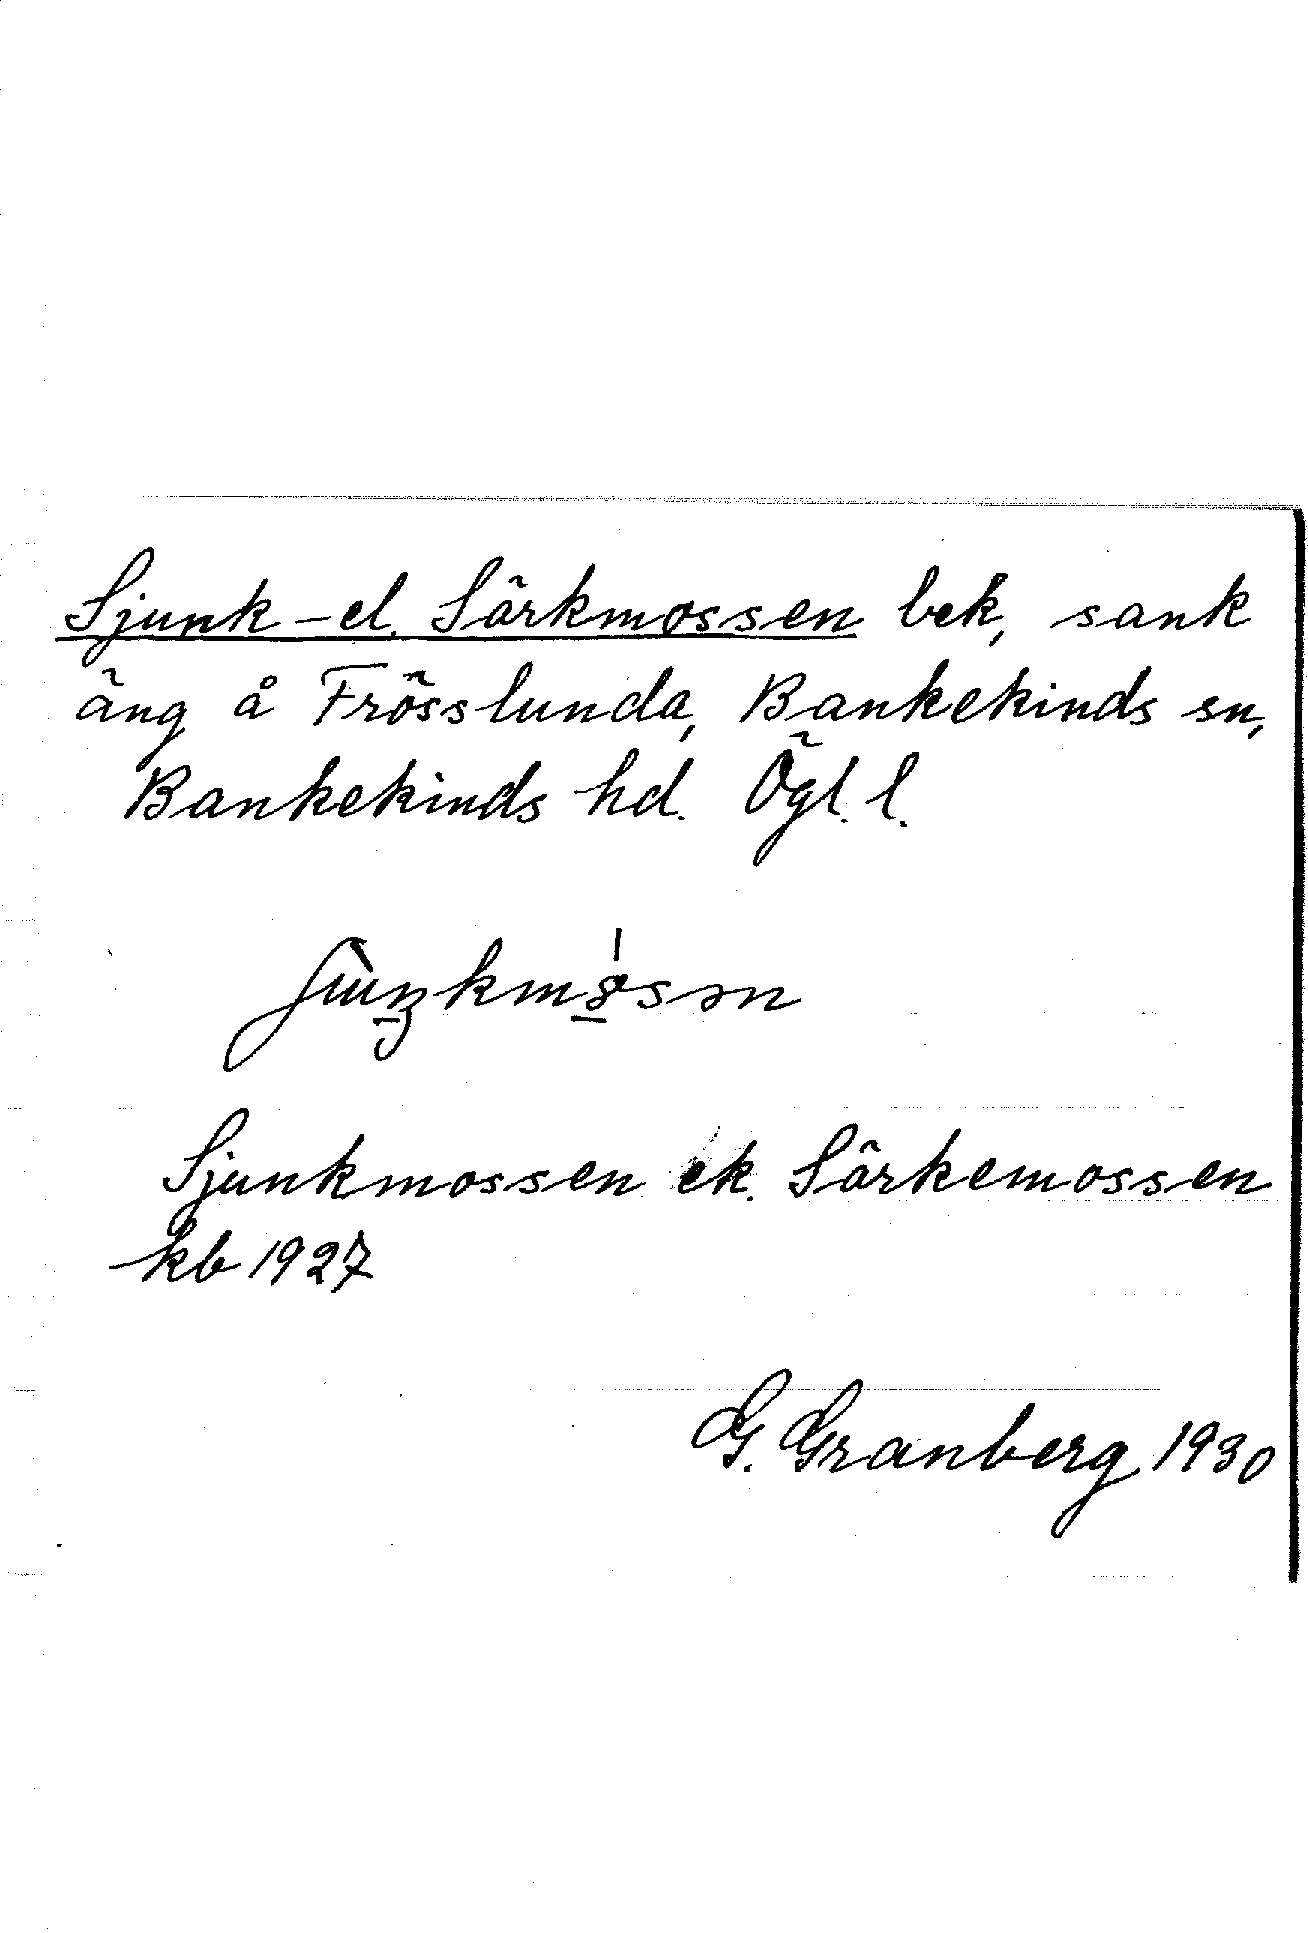 Sjunk- el. Särkmossen bek, sank
äng å Frösslunda, Bankekinds sn,
Bankekinds hd. Ögl. l.
Sjunkmossen ek. Särkemossen
kb 1927
G. Granberg 1930